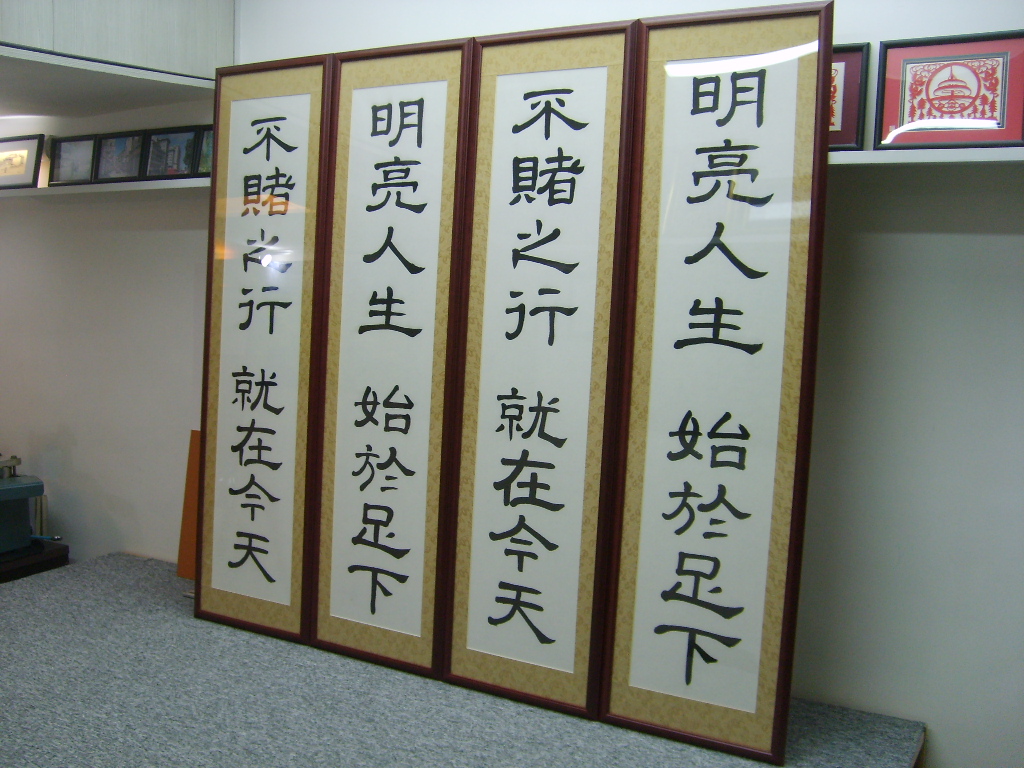 明亮人生 始於足下
不賭之行 就在今天
明亮人生 始於足下
不賭之行 就在今天